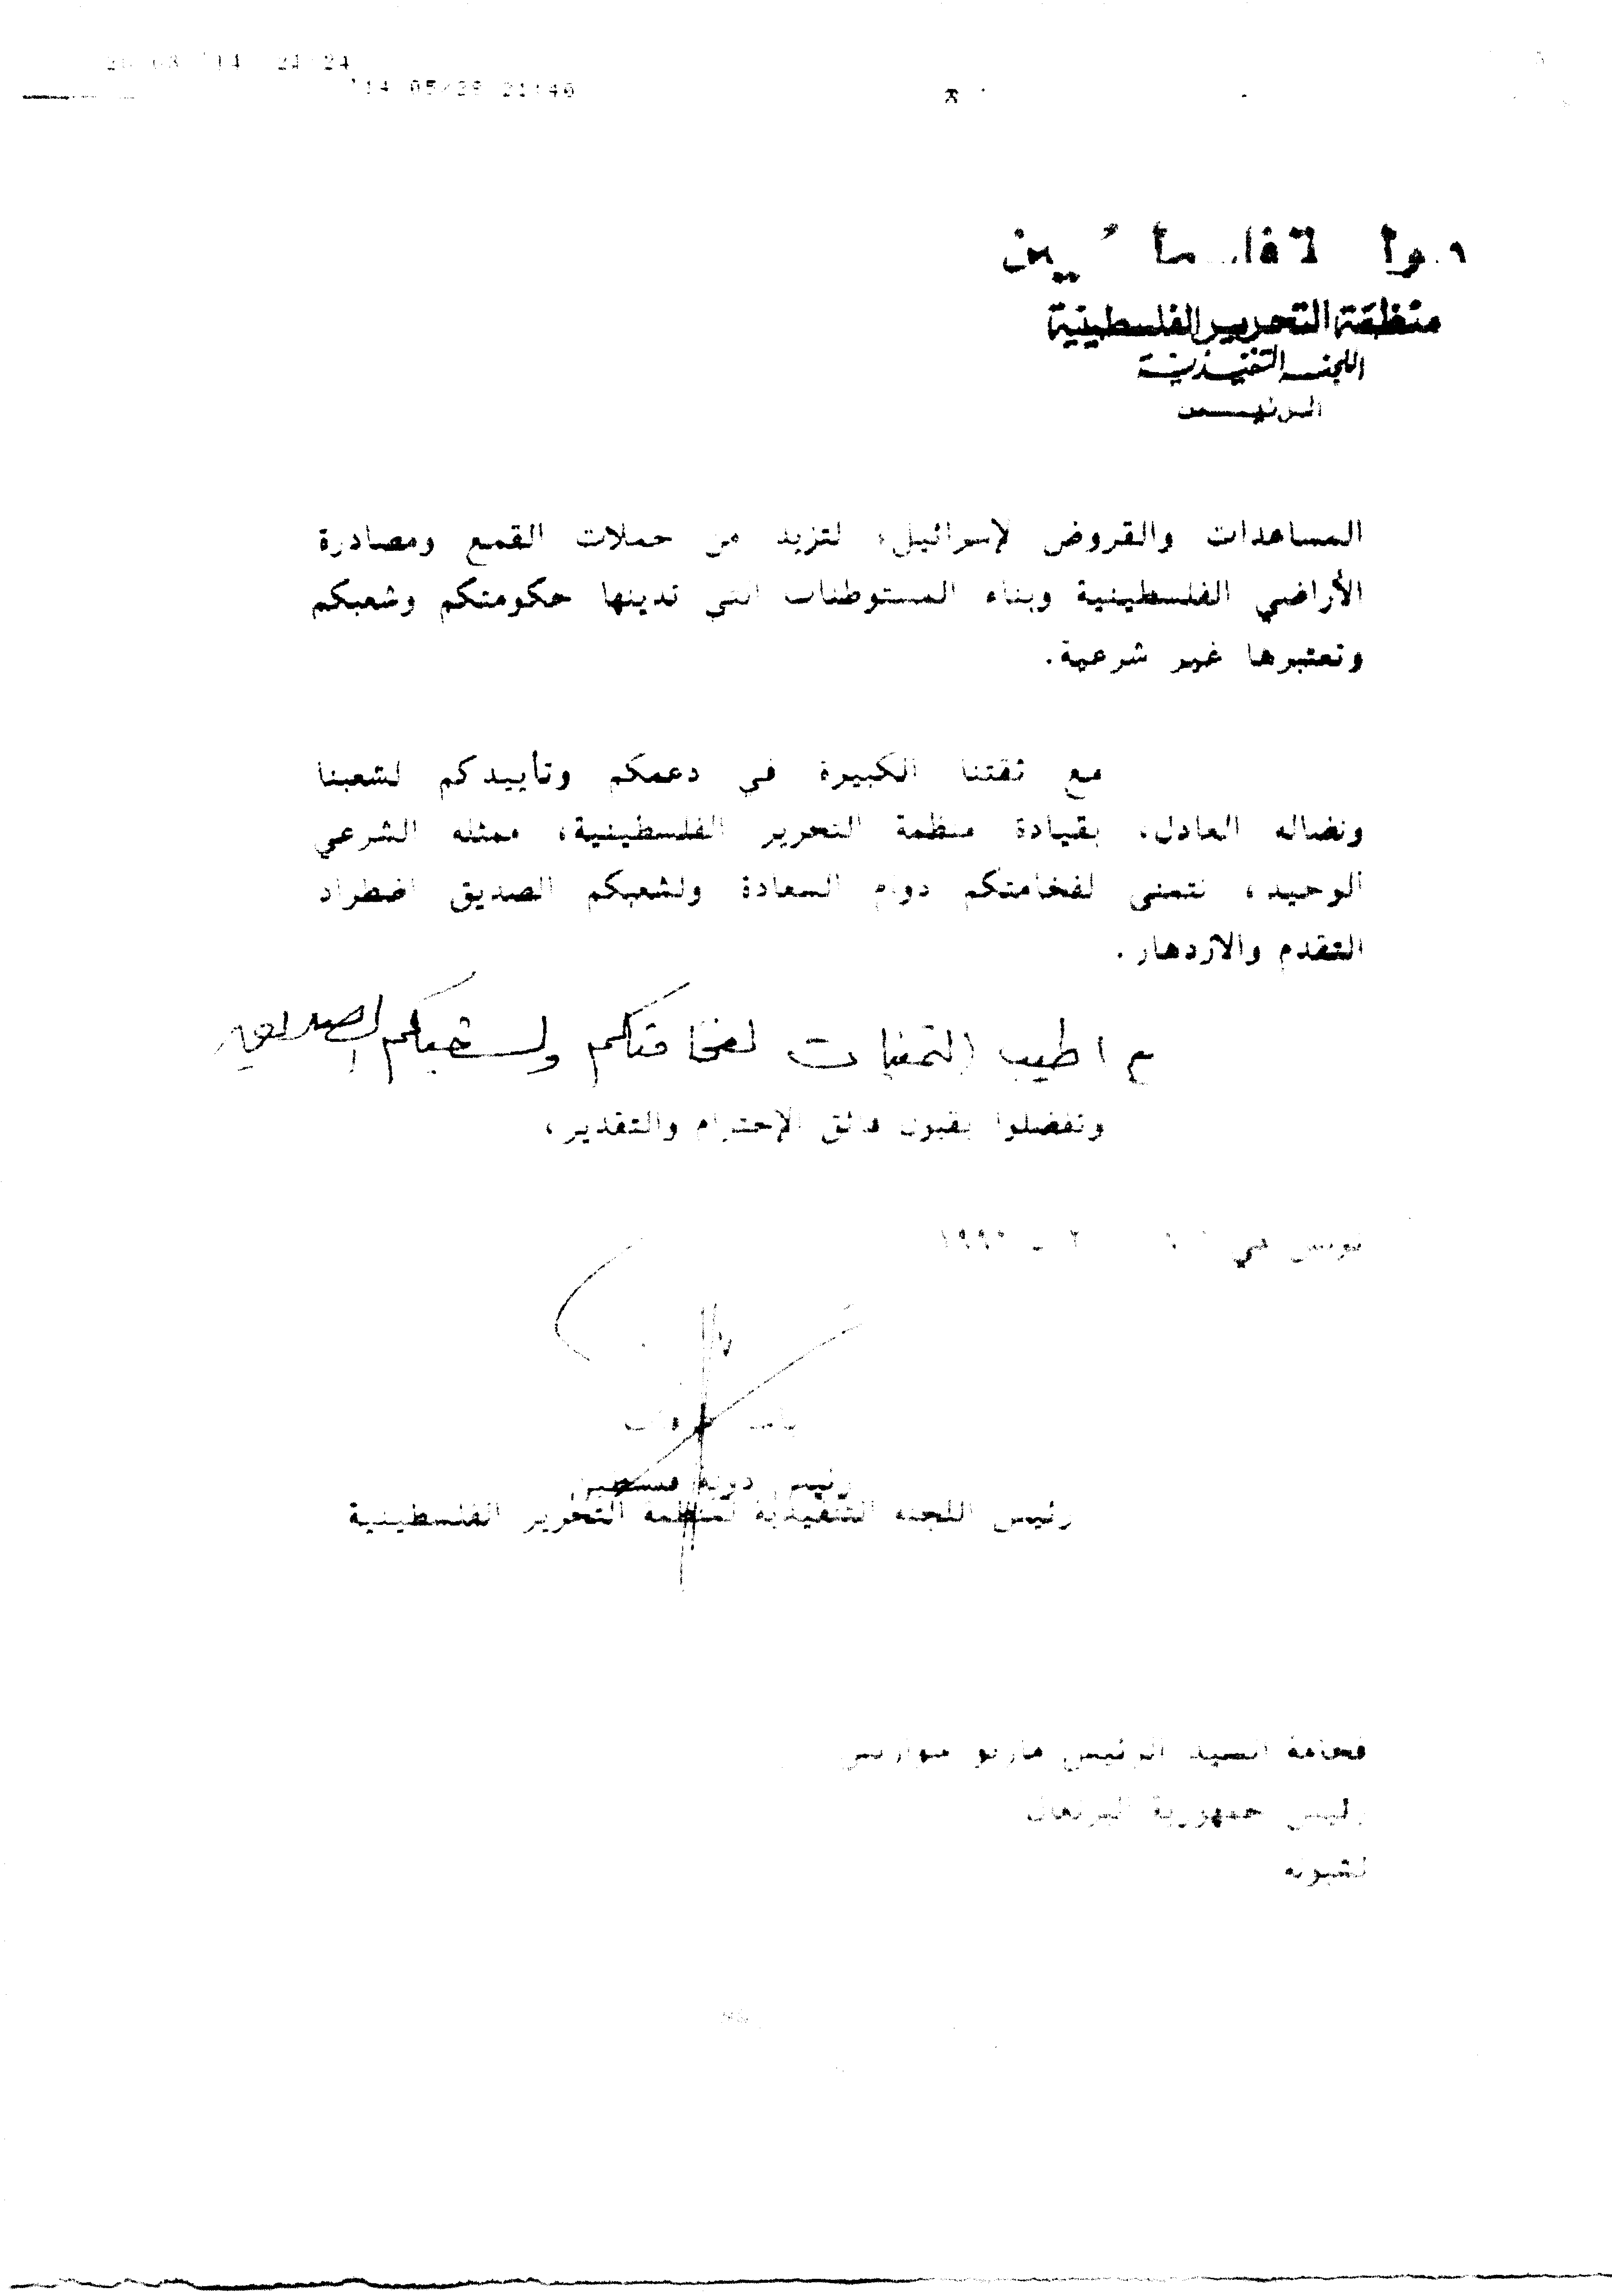 '14 05/29 21:40
منظمة التحرير الفلسطينية
اللجنة التنفيذية
الرئيس
المساعدات والقروض لإسرائيل، لتزيد من حملات القمع ومصادرة
الأراضي الفلسطينية وبناء المستوطنات التي تدينها حكومتكم وشعبكم
وتعتبرها غير شرعية.
مع ثقتنا الكبيرة في دعمكم وتأييدكم لشعبنا
ونضاله العادل، بقيادة منظمة التحرير الفلسطينية، ممثله الشرعي
الوحيد، نتمنى لفخامتكم دوام السعادة ولشعبكم الصديق اضطراد
التقدم والازدهار.
مع اطيب التمنيات لفخامتكم ولشعبكم الصديق
وتفضلوا بقبول فائق الإحترام والتقدير،
تونس في
رئيس دولة فلسطين
رئيس اللجنة التنفيذية لمنظمة التحرير الفلسطينية
فخامة السيد الرئيس ماريو سواريس
رئيس جمهورية البرتغال
لشبونه